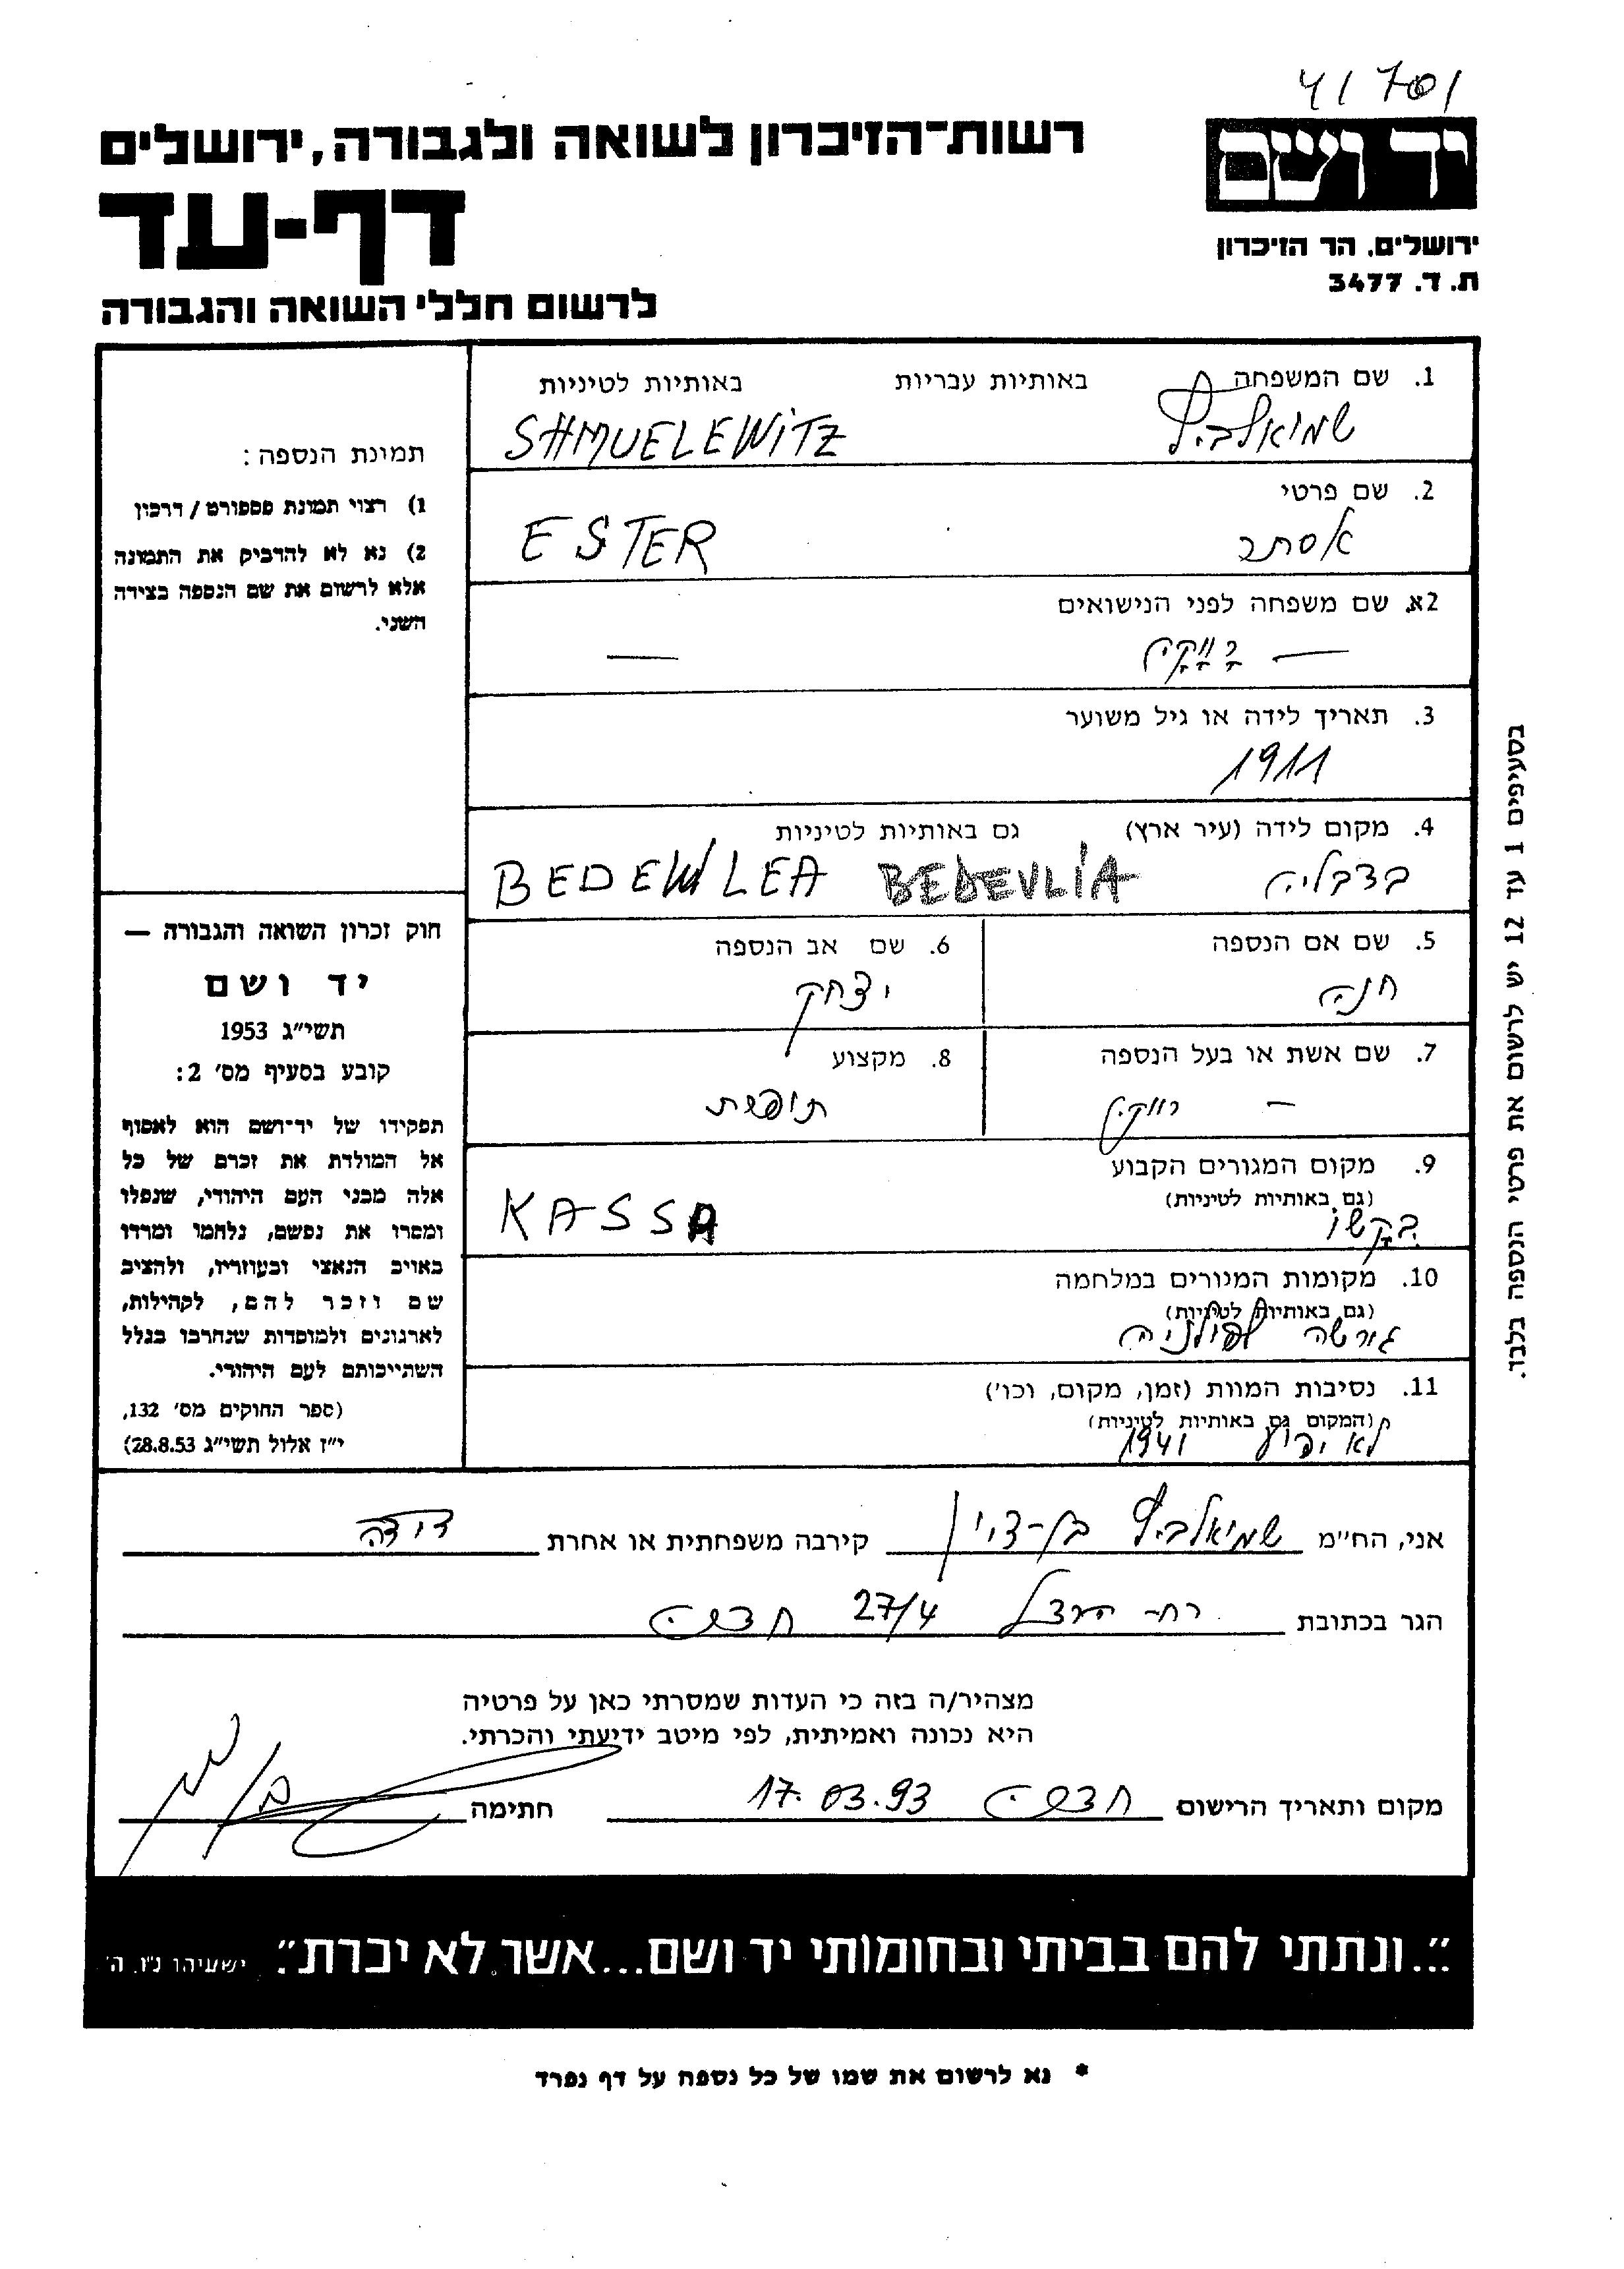 41701
יד ושם
ירושלים, הר הזיכרון
ת. ד. 3477
רשות-הזיכרון לשואה ולגבורה, ירושלים
דף-עד
לרשום חללי השואה והגבורה
1. שם המשפחה באותיות עבריות באותיות לטיניות
שמואלביץ SHMUELEWITZ
2. שם פרטי
אסתר ESTER
2א. שם משפחה לפני הנישואים
— רווקה —
3. תאריך לידה או גיל משוער
1911
4. מקום לידה (עיר ארץ) גם באותיות לטיניות
בדבליה BEDEVLIA BEDEWLEA
5. שם אם הנספה 6. שם אב הנספה
חנה יצחק
7. שם אשת או בעל הנספה 8. מקצוע
— רווקה תופרת
9. מקום המגורים הקבוע
(גם באותיות לטיניות)
KASSA
10. מקומות המגורים במלחמה
(גם באותיות לטיניות)
11. נסיבות המוות (זמן, מקום, וכו')
(המקום גם באותיות לטיניות)
לא ידוע 1941
תמונת הנספה:
1) רצוי תמונת פספורט / דרכון
2) נא לא להדביק את התמונה
אלא לרשום את שם הנספה בצידה
השני.
חוק זכרון השואה והגבורה —
יד ושם
תשי"ג 1953
קובע בסעיף מס' 2:
תפקידו של יד-ושם הוא לאסוף
אל המולדת את זכרם של כל
אלה מבני העם היהודי, שנפלו
ומסרו את נפשם, נלחמו ומרדו
באויב הנאצי ובעוזריו, ולהציב
שם וזכר להם, לקהילות,
לארגונים ולמוסדות שנחרבו בגלל
השתייכותם לעם היהודי.
(ספר החוקים מס' 132,
י"ז אלול תשי"ג 28.8.53)
בסעיפים 1 עד 12 יש לרשום את פרטי הנספה בלבד.
אני, הח"מ שמואלביץ בן-ציון קירבה משפחתית או אחרת דודה
הגר בכתובת רח- הרצל 27/4 חדרה
מצהיר/ה בזה כי העדות שמסרתי כאן על פרטיה
היא נכונה ואמיתית, לפי מיטב ידיעתי והכרתי.
מקום ותאריך הרישום 17.03.93 חתימה
"...ונתתי להם בביתי ובחומותי יד ושם...אשר לא יכרת". ישעיהו נ"ו, ה'
* נא לרשום את שמו של כל נספה על דף נפרד